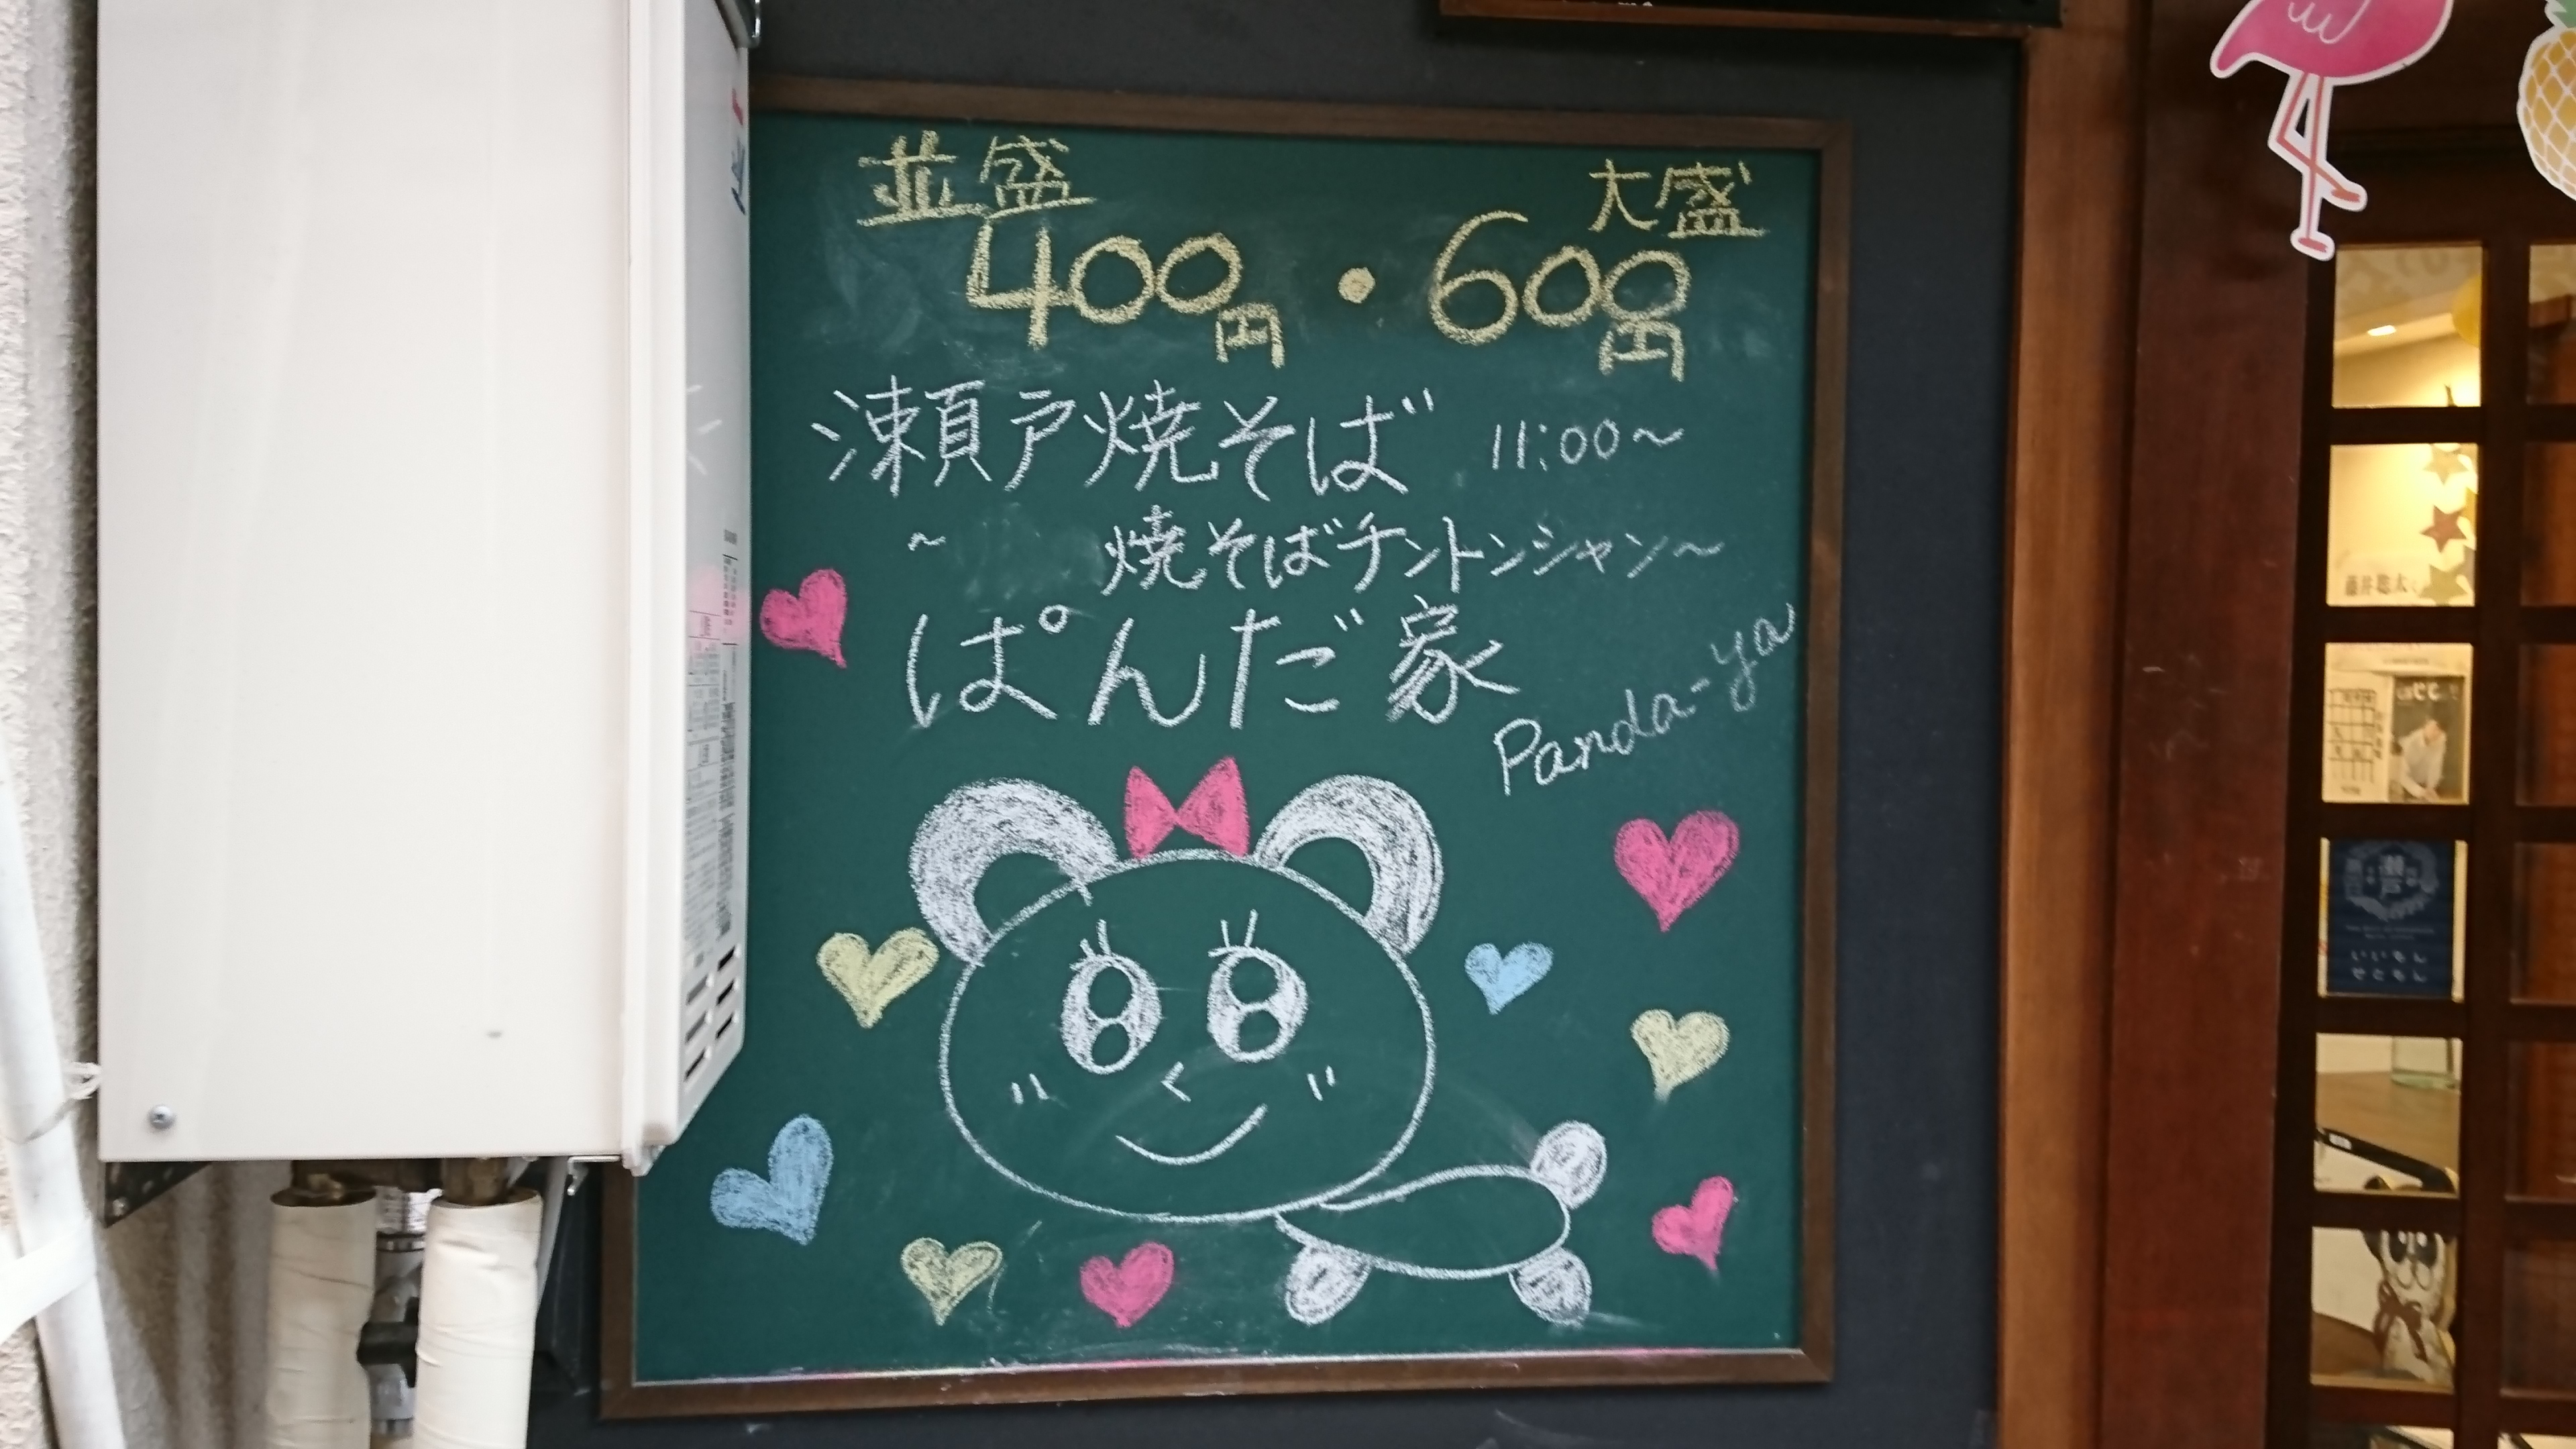 並盛 大盛
400円・600円
瀬戸焼そば 11:00～
～ 焼そばチントンシャン～
ぱんだ家
Panda-ya
藤井聡太
瀬戸
いいもん
せともん